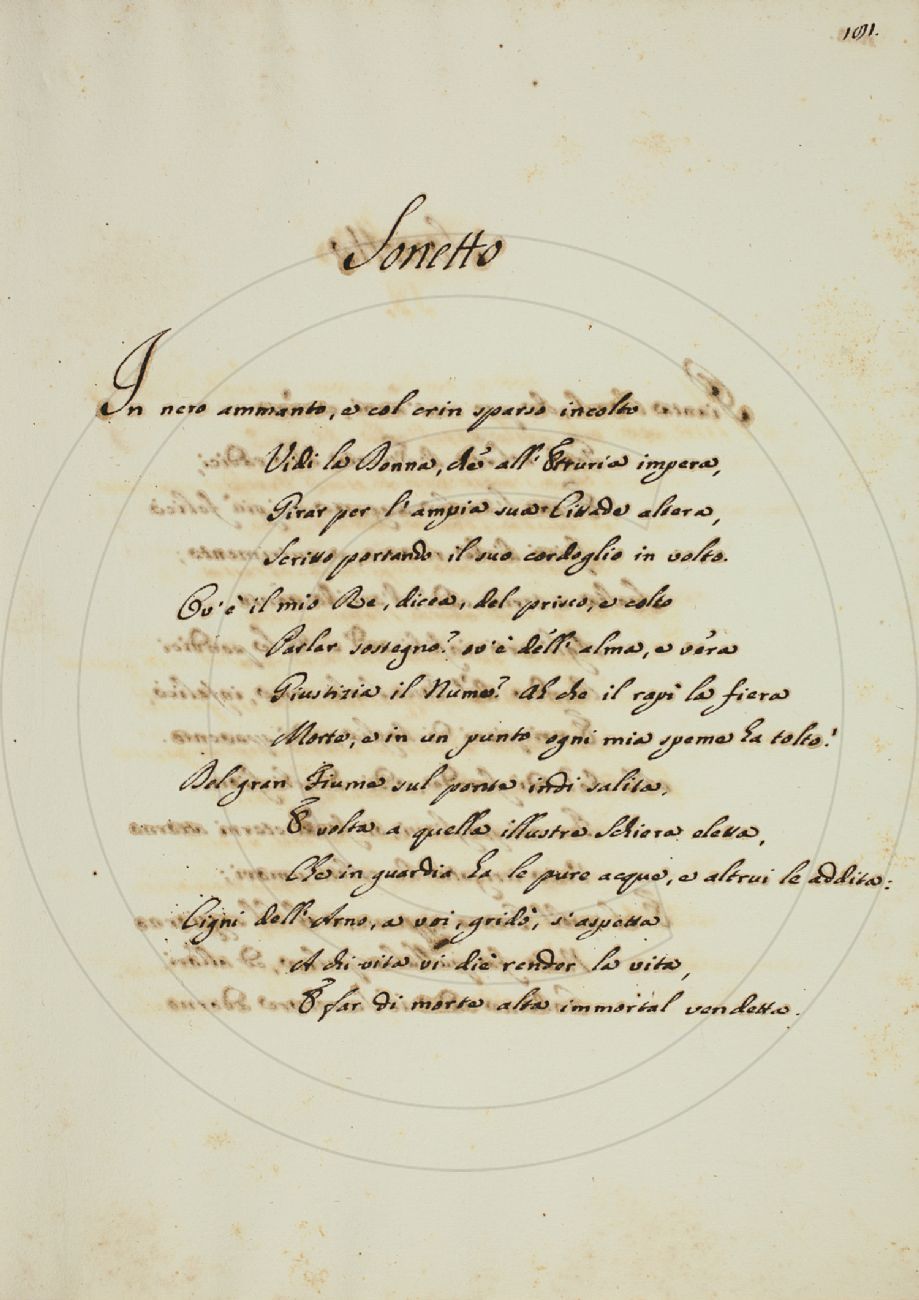 191.
Sonetto
In nero ammanto, e col crin sparso incolto
Vidi la Donna, ch'è all'Etruria impera,
Girar per l'ampia sua Cittade altera,
Scritto portando il suo cordoglio in volto.
Ov'è il mio Re, dicea, del prisco, e colto
Parlar sostegno? ov'è dell'alma, e vera
Giustizia il Nume? Ah che il rapì la fiera
Morte, e in un punto ogni mia speme ha tolto!
Del gran Fiume sul ponte indi salita,
E volta a quella illustre Schiera eletta,
Che in guardia ha le pure acque, e altrui le addita:
Cigni dell'Arno, a voi, gridò, s'aspetta
A chi vita vi diè render la vita,
E far di morte alta immortal vendetta.